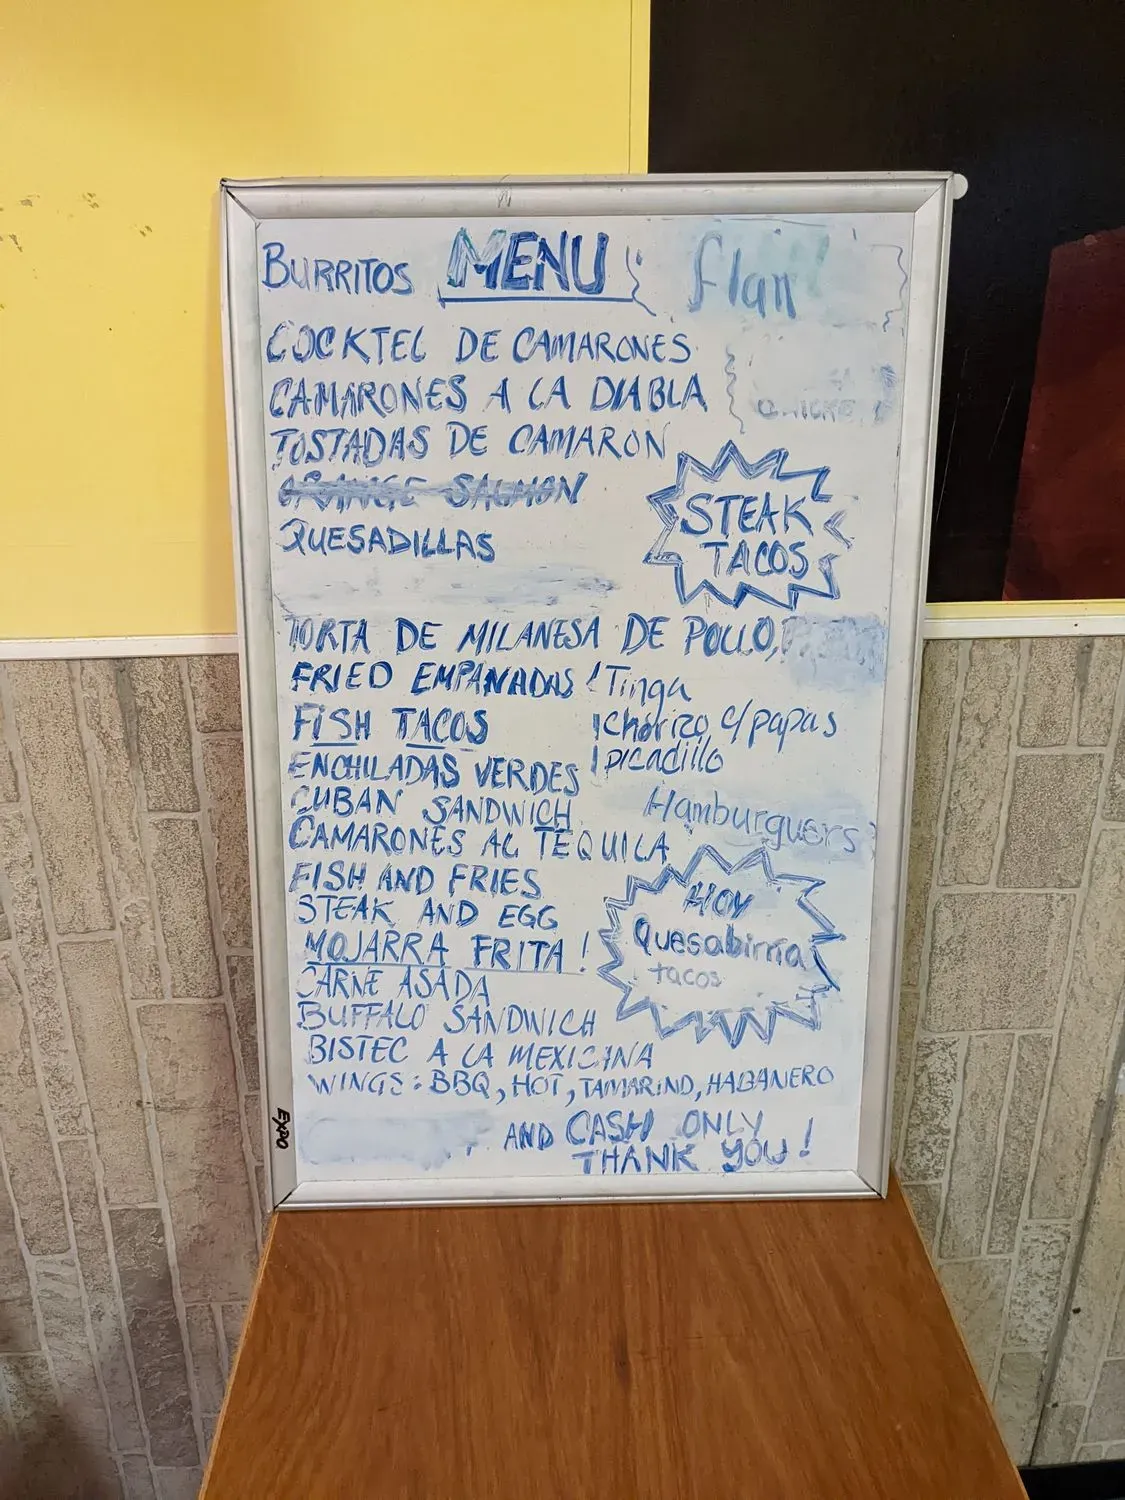 BURRITOS MENU flan
COCKTEL DE CAMARONES
CAMARONES A LA DIABLA
TOSTADAS DE CAMARON
ORANGE SALMON
STEAK
TACOS
QUESADILLAS
TORTA DE MILANESA DE POLLO,
FRIED EMPANADAS ! Tinga
FISH TACOS ! chorizo c/papas
ENCHILADAS VERDES ! picadillo
CUBAN SANDWICH Hamburguers
CAMARONES AL TEQUILA
FISH AND FRIES
STEAK AND EGG
HOY
Quesabirria
tacos
MOJARRA FRITA !
CARNE ASADA
BUFFALO SANDWICH
BISTEC A LA MEXICANA
WINGS: BBQ, HOT, TAMARIND, HABANERO
AND CASH ONLY
THANK YOU !
EXPO